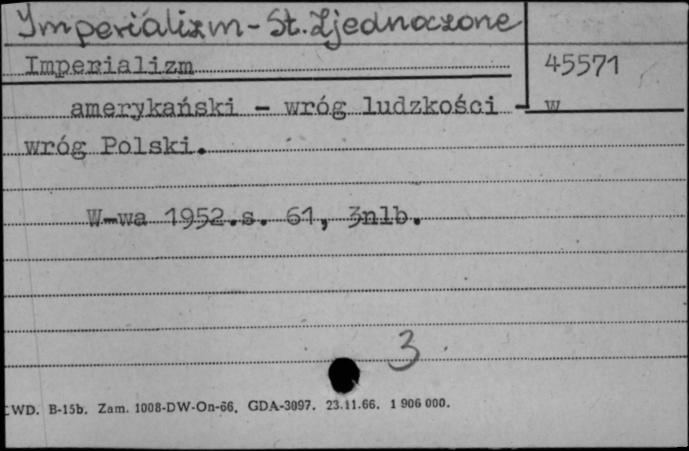 Imperializm - St. Zjednoczone
Imperializm 45571
amerykański - wróg ludzkości - w
wróg Polski.
W-wa 1952.s. 61, 3nlb.
3
WD. B-15b. Zam. 1008-DW-On-66. GDA-3097. 23.11.66. 1 906 000.